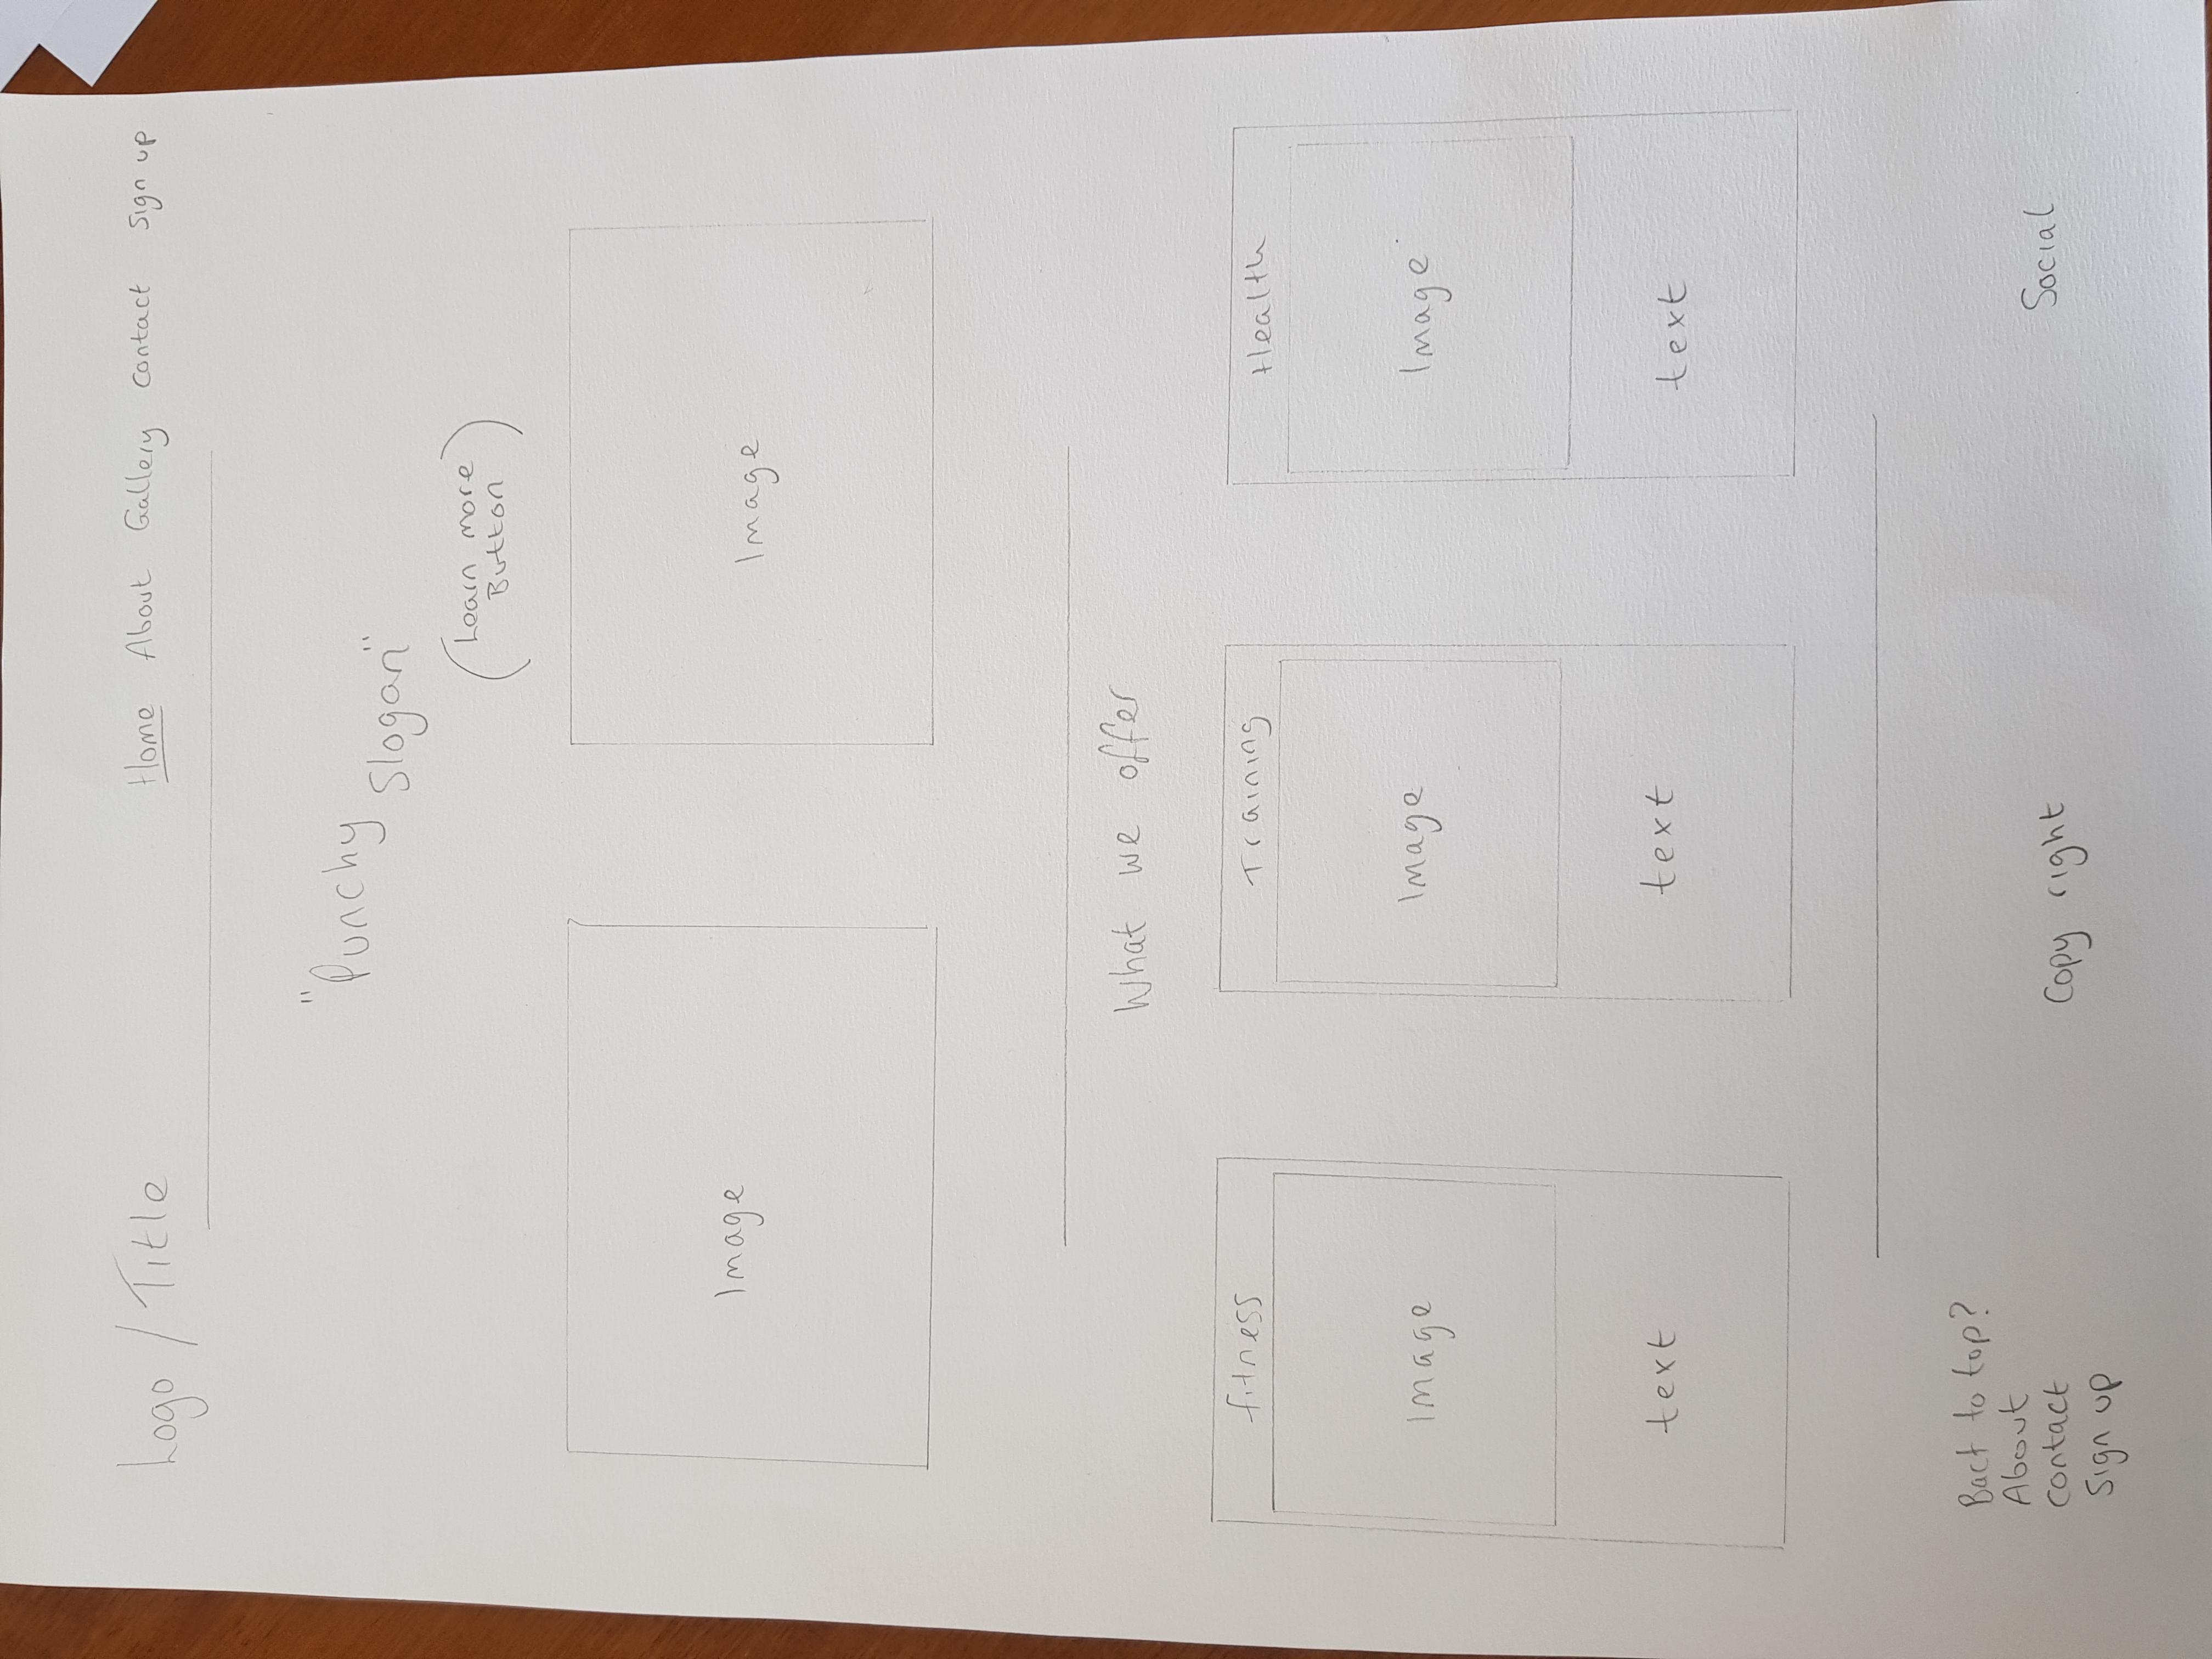 Logo / Title
Home About Gallery contact Sign up
"Punchy
Slogan"
(Learn more
Button)
Image
Image
What we offer
fitness
Image
text
Training
Image
text
Health
Image
text
Bact to top?
About
contact
Sign up
Copy right
Social